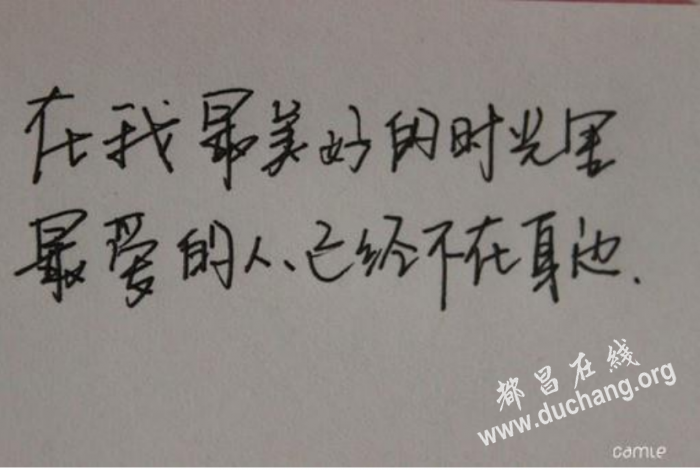 在我最美好的时光里
最爱的人、已经不在身边.
都昌在线
www.duchang.org
camie